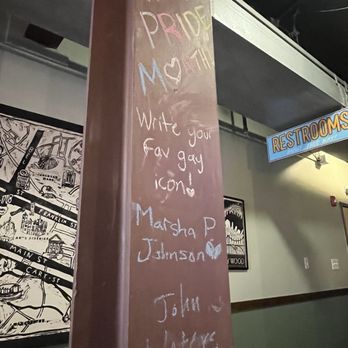 PRIDE
MONTH
Write your
fav gay
icon!
Marsha P
Johnson
John
Waters
RESTROOMS
FRANKLIN ST.
MAIN ST.
CARY ST.